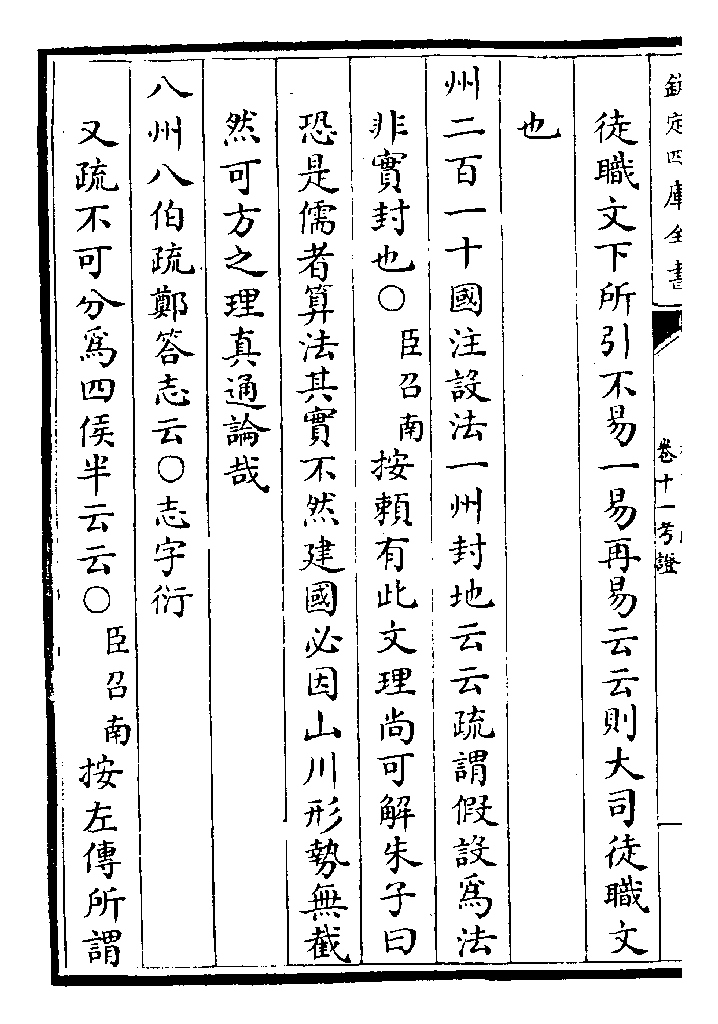 欽定四庫全書
卷十一考證
徒職文下所引不易一易再易云云則大司徒職文
也
州二百一十國注設法一州封地云云疏謂假設爲法
非實封也〇臣召南按賴有此文理尚可解朱子曰
恐是儒者算法其實不然建國必因山川形勢無截
然可方之理真通論哉
八州八伯疏鄭答志云〇志字衍
又疏不可分爲四侯半云云〇臣召南按左傳所謂